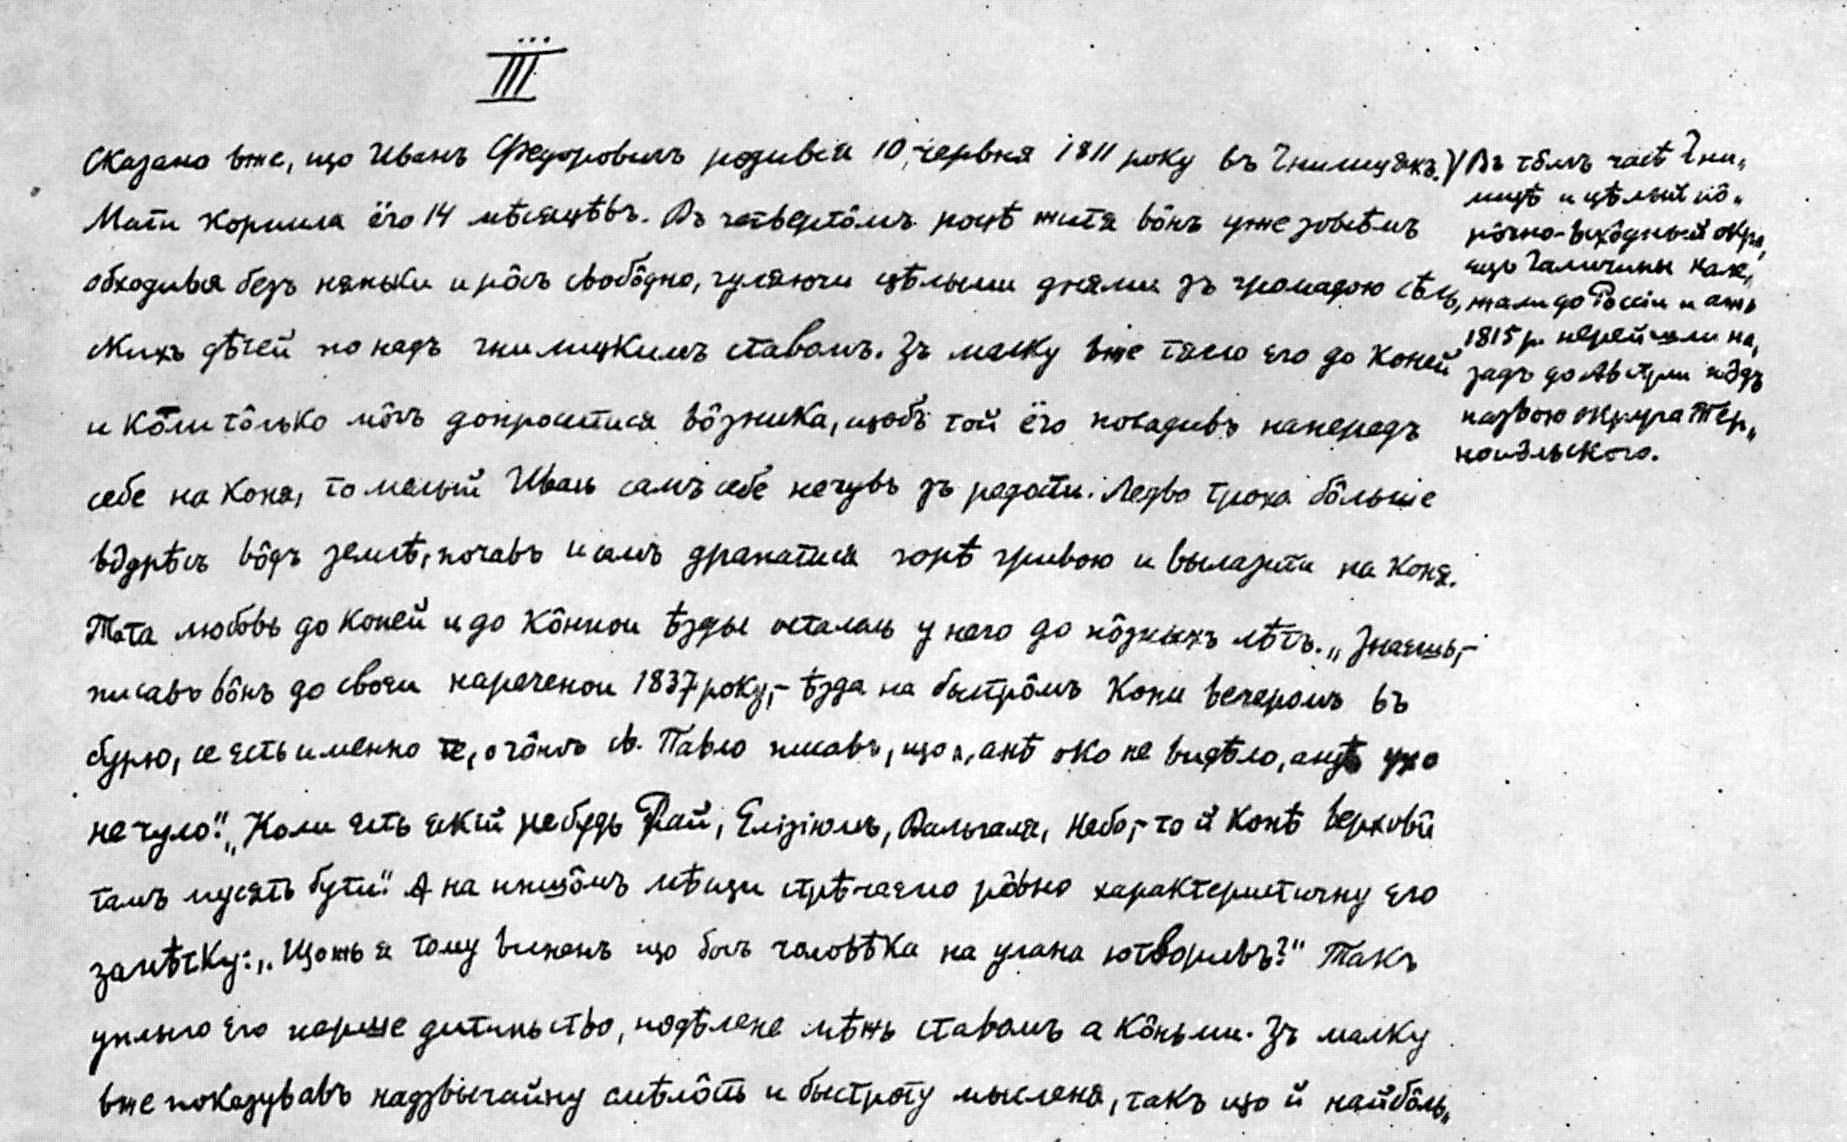 III
Сказано вже, що Иванъ Федоровичъ родився 10 червня 1811 року въ Гнилицяхъ.)
Мати кормила ёго 14 мѣсяцѣвъ. Въ четвертôмъ роцѣ житя вôнъ уже зовсѣмъ
обходився безъ няньки и рôсъ свобôдно, гуляючи цѣлыми днями зъ громадою сѣль„
скихъ дѣтей по надъ гнилицкимъ ставомъ. Зъ малку вже тягло его до коней
и коли тôлько мôгъ допроситися вôзника, щобъ той ёго посадивъ напередъ
себе на коня, то малый Ивась самъ себе нечувъ зъ радости. Ледво троха бôльше
вôдрôсъ вôдъ землѣ, почавъ и самъ драпатися горѣ гривою и вылазити на коня.
Тота любовь до коней и до кôннои ѣзды осталась у него до пôзныхъ лѣтъ. „Знаешь,–
писавъ вôнъ до своеи нареченои 1837 року,– ѣзда на быстрôмъ кони вечеромъ въ
бурю, се есть именно те, о чôмъ св. Павло писавъ, що „анѣ око не видѣло, анѣ ухо
не чуло". „Коли есть якій небудь Рай, Елізіюмъ, Вальгаля, Небо,– то й конѣ верховй
тамъ мусять бути". А на иншôмъ мѣсци стрѣчаемо рôвно характеристичну его
замѣтку: „Щожь я тому виненъ що богъ чоловѣка на улана сотворивъ?" Такъ
уплыло его перше дитиньство, подѣлене мѣжь ставомъ а кôньми. Зъ малку
вже показувавъ надзвычайну смѣлôсть и быстроту мысленя, такъ що й найбôль„
) Въ тôмъ часѣ Гни„
лицѣ и цѣлый пô„
нôчно-всхôдный окра„
ець Галичины нале„
жали до Россіи и ажь
1815 р. перейшли на„
задъ до Австріи пôдъ
назвою округа Тер„
нопôльского.